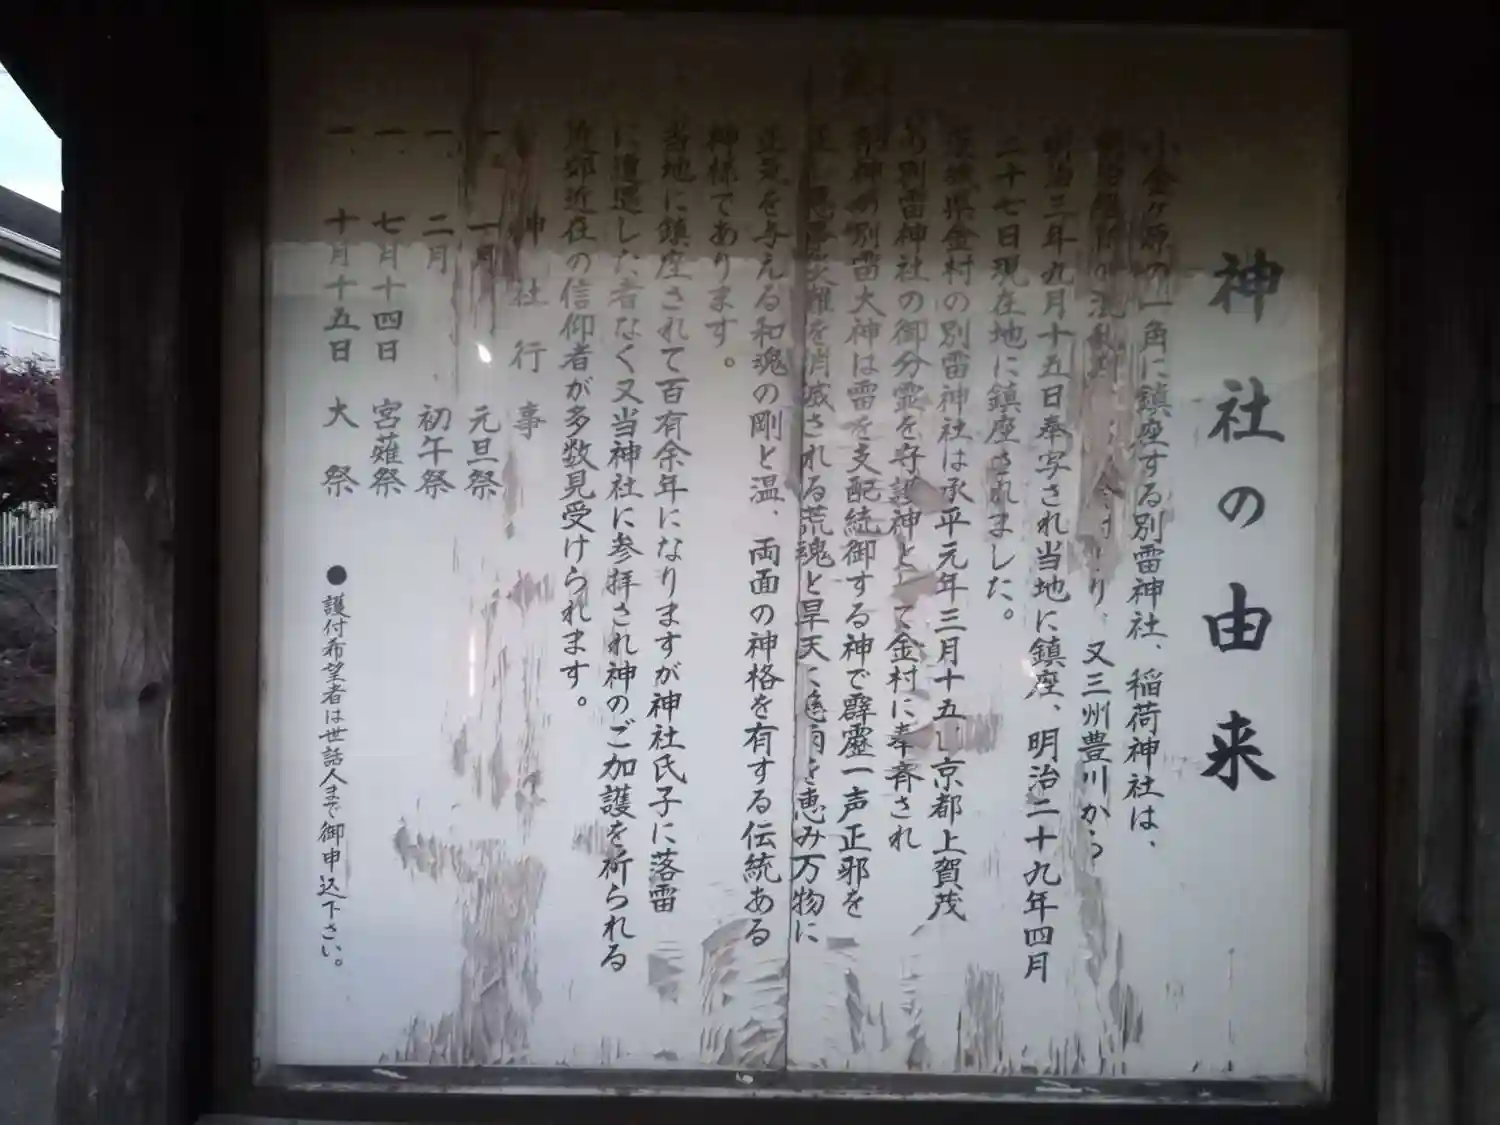 神社の由来
小金ヶ原の一角に鎮座する別雷神社、稲荷神社は、
又三州豊川から
明治三年九月十五日奉写され当地に鎮座、明治二十九年四月
二十七日現在地に鎮座されました。
茨城県金村の別雷神社は承平元年三月十五 京都上賀茂
の別雷神社の御分霊を守護神として金村に奉斉され
別雷大神は雷を支配統御する神で霹靂一声正邪を
災難を消滅される荒魂と旱天に 恵み万物に
正気を与える和魂の剛と温、両面の神格を有する伝統ある
神様であります。
当地に鎮座されて百有余年になりますが神社氏子に落雷
に遭遇した者なく又当神社に参拝され神のご加護を祈られる
近郊近在の信仰者が多数見受けられます。
神社行事
一、一月 元旦祭
一、二月 初午祭
一、七月十四日 宮薙祭
一、十月十五日 大祭
●護付希望者は世話人まで御申込下さい。